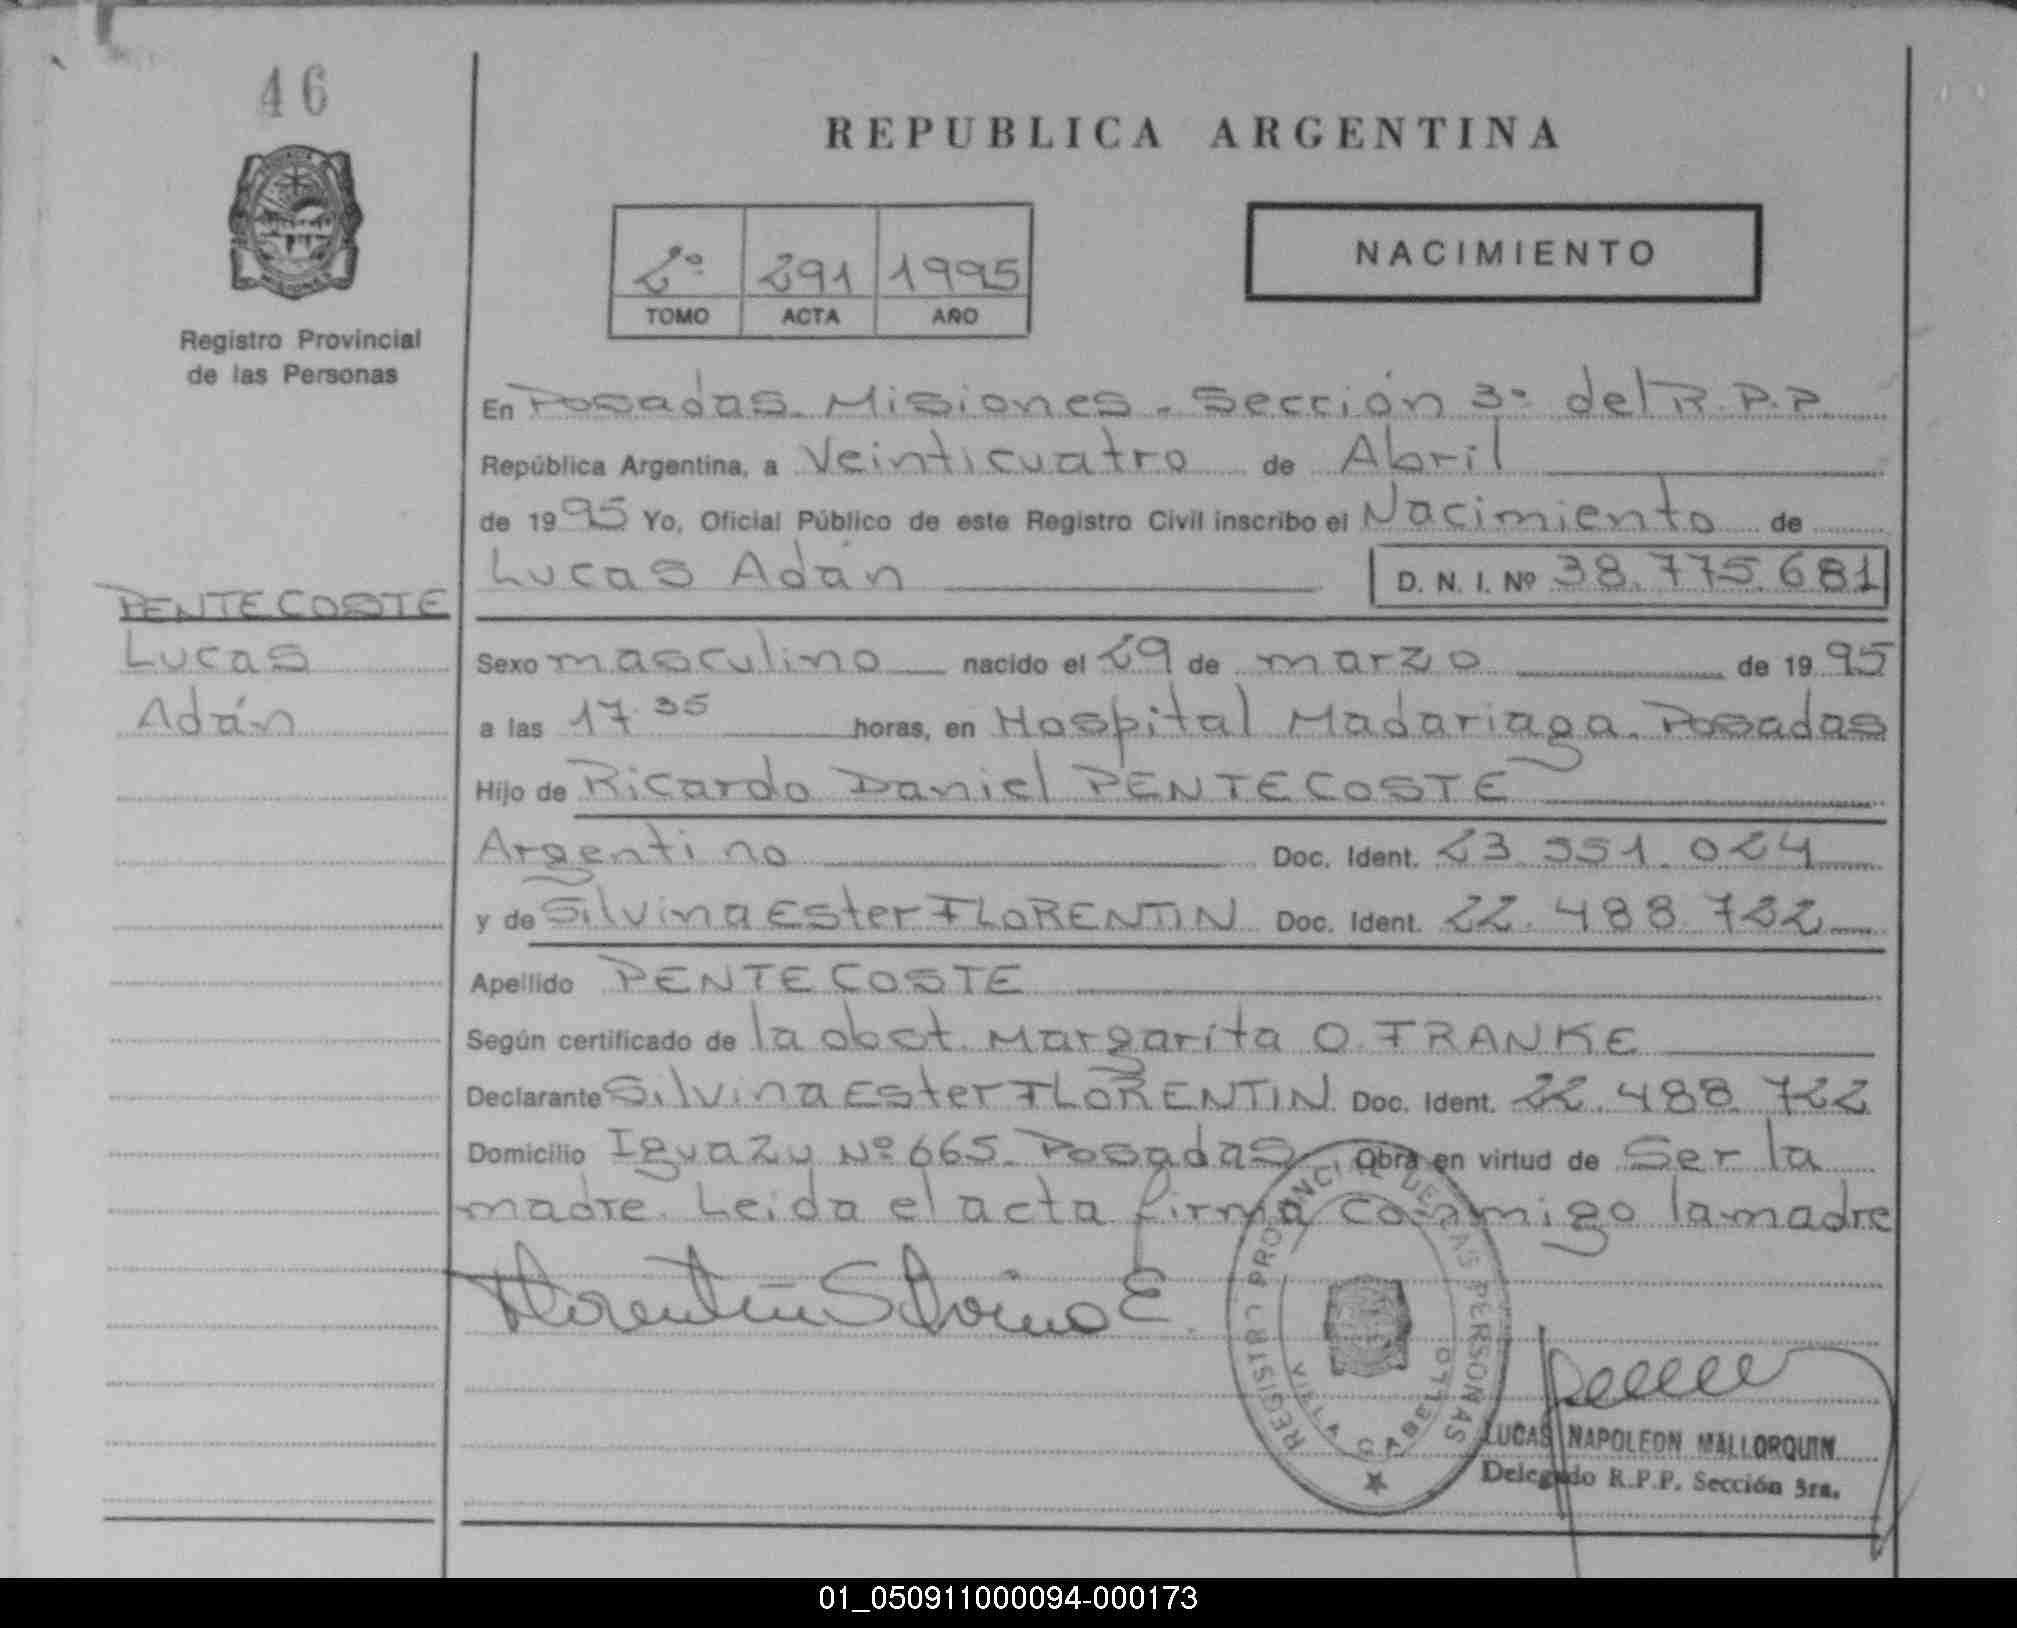 46
REPUBLICA ARGENTINA
2º 291 1995
TOMO ACTA AÑO
NACIMIENTO
Registro Provincial
de las Personas
En Posadas. Misiones. Sección 3º del R.P.P
República Argentina, a Veinticuatro de Abril
de 1995 Yo, Oficial Público de este Registro Civil inscribo el Nacimiento de
Lucas Adán D. N. I. Nº 38.775.681
PENTECOSTE
Lucas
Adán
Sexo masculino nacido el 29 de marzo de 1995
a las 17.35 horas, en Hospital Madariaga. Posadas
Hijo de Ricardo Daniel PENTECOSTE
Argentino Doc. Ident. 23.551.024
y de Silvina Ester FLORENTIN Doc. Ident. 22.488.722
Apellido PENTECOSTE
Según certificado de la obst. Margarita O. FRANKE
Declarante Silvina Ester FLORENTIN Doc. Ident. 22.488.722
Domicilio Iguazu Nº 665. Posadas Obra en virtud de Ser la
madre. Leida el acta firma conmigo la madre
Florentin Silvina E.
REGISTRO PROVINCIAL DE LAS PERSONAS
VILLA CABELLO
LUCAS NAPOLEON MALLORQUIN
Delegado R.P.P. Sección 3ra.
01_050911000094-000173